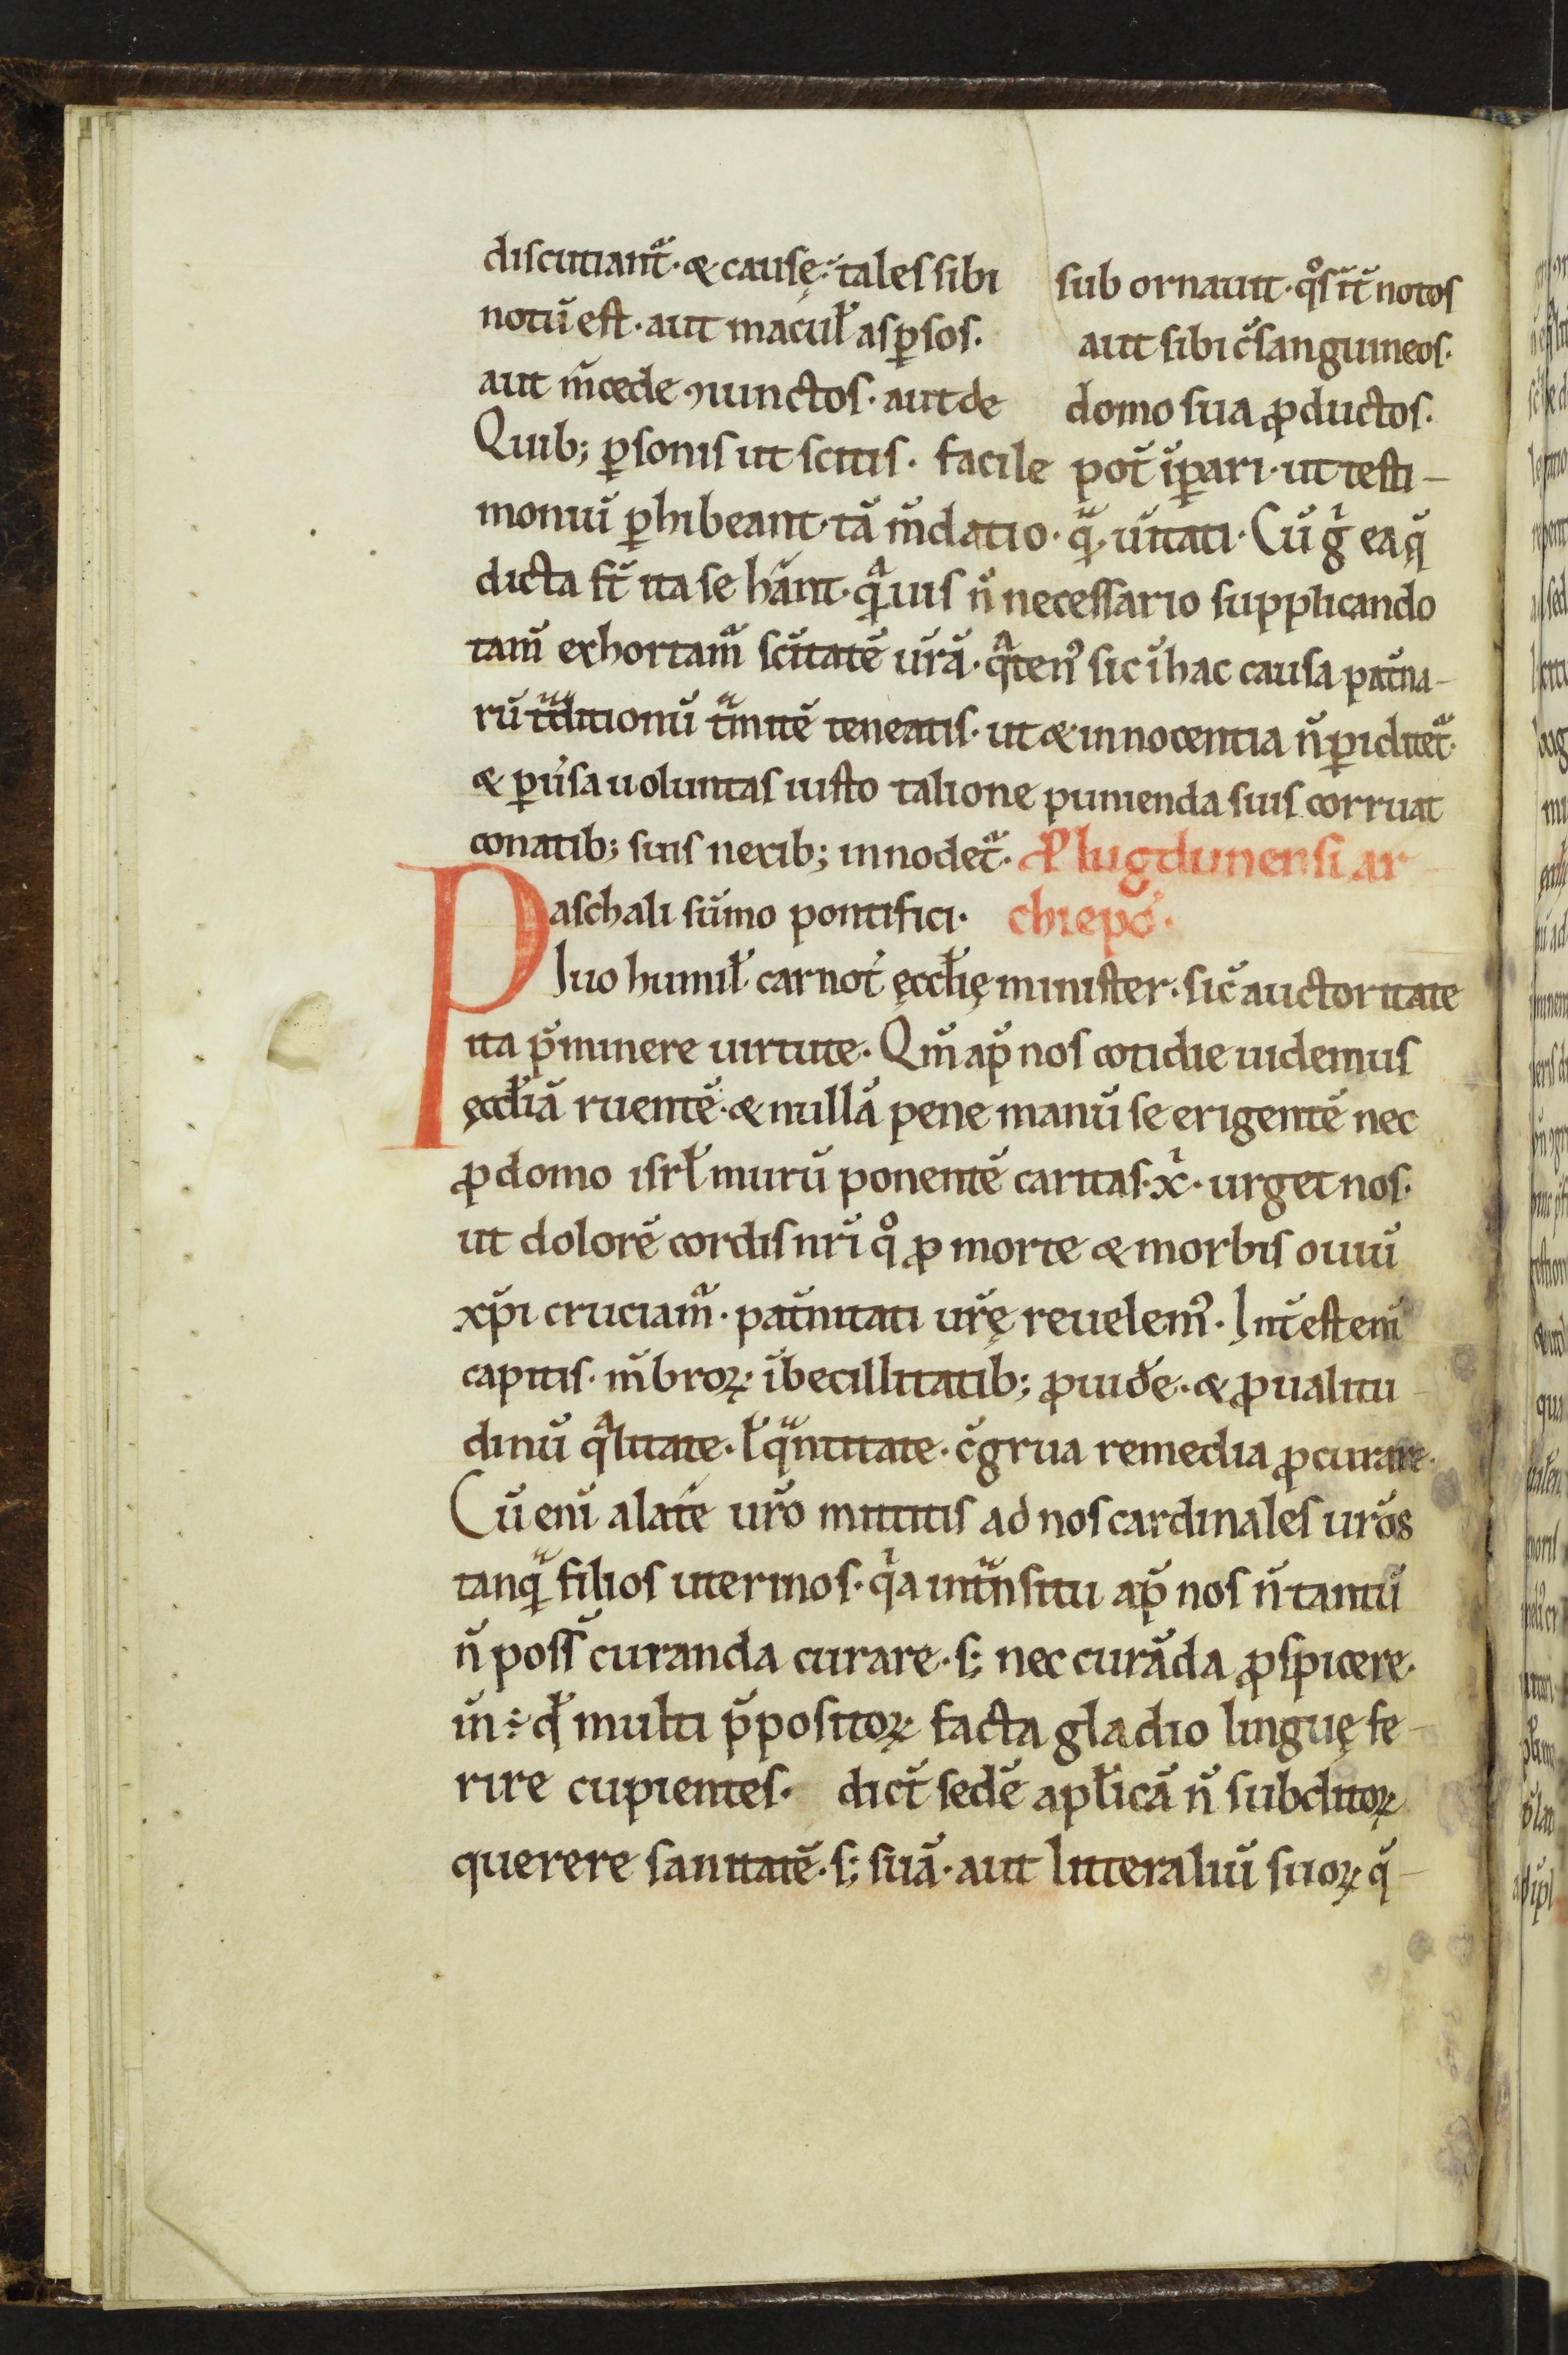 discutiant᷑· & causę· tales sibi sub ornauit· qͦs it̄ notos
notū est· aut macul̄ aspersos. aut sibi c̄sanguineos·
aut m̄cede ꝯiunctos· aut de domo sua ꝓductos.
Quib; ꝑsonis ut scitis· facile pot̄ īꝑari· ut testi-
moniū ꝑhibeant· tā m̄datio· qᷓ uītati· Cū gͥ ea q̄
dicta st̄ ita se hn̄t· qᵃuis n̄ necessario supplicando
tam̄ exhortam᷑ sc̄itatē ur̄ā· qᵃten᷒ sic ī hac causa pat̄na-
rū tᷓditionū tᷓmitē teneatis· ut & innocentia n̄ ꝑiclitet᷑·
& ꝑūsa uoluntas iusto talione punienda suis corruat
conatib; suis nexib; innodet᷑· P̄ lugdunensi ar
Paschali sūmo pontifici· chiepō·
Iuo humil̄ carnot̄ ęccl̄ię minister· sic̄ auctoritate
ita p̄minere uirtute· Qm̄ ap̄ nos cotidie uidemus
ęccl̄iā ruentē· & nullā pene manū se erigentē nec
ꝓ domo isrl̄ murū ponentē caritas· xͥ· urget nos·
ut dolorē cordis nr̄i qͦ ꝓ morte & morbis ouiū
xp̄i cruciam᷑· pat̄nitati ur̄ę reuelem᷒· Int̄est eni
capitis· m̄broꝝ ībecillitatib; ꝓuid̄e· & ꝓ ualitu
dinū qᵃlitate· l̄ qᷓntitate· c̄grua remedia ꝓcurare·
Cū eni a latē ur̄o mittitis ad nos cardinales ur̄os
tanqᷓ filios uterinos· qͥa in tᷓnsitu ap̄ nos n̄ tantū
n̄ poss̄ curanda curare· s; nec curāda ꝓspicere·
īn ÷ qd̄ multi p̄positoꝝ facta gladio linguę fe-
rire cupientes· dict̄ sedē apl̄icā n̄ subditoꝝ
querere sanitatē· s; suā· aut litteraliū suoꝝ q̄-